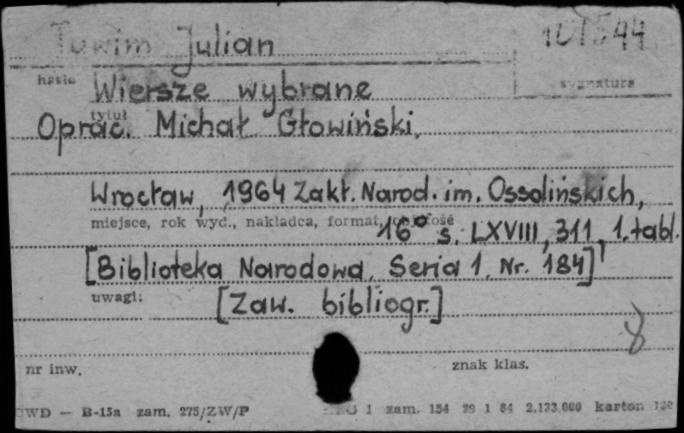 Tuwim Julian
hasło
sygnatura
Wiersze wybrane
tytuł
Oprac. Michał Głowiński,
Wrocław, 1964 Zakł. Narod. im. Ossolińskich,
miejsce, rok wyd., nakładca, format,
16° s. LXVIII, 311, 1. tabl.
[Biblioteka Narodowa. Seria 1. Nr. 184]
uwagi:
[Zaw. bibliogr.]
8
nr inw.
znak klas.
WD — B-15a zam. 275/ZW/P
1 zam. 154 29 1 64 2.133.000 karton